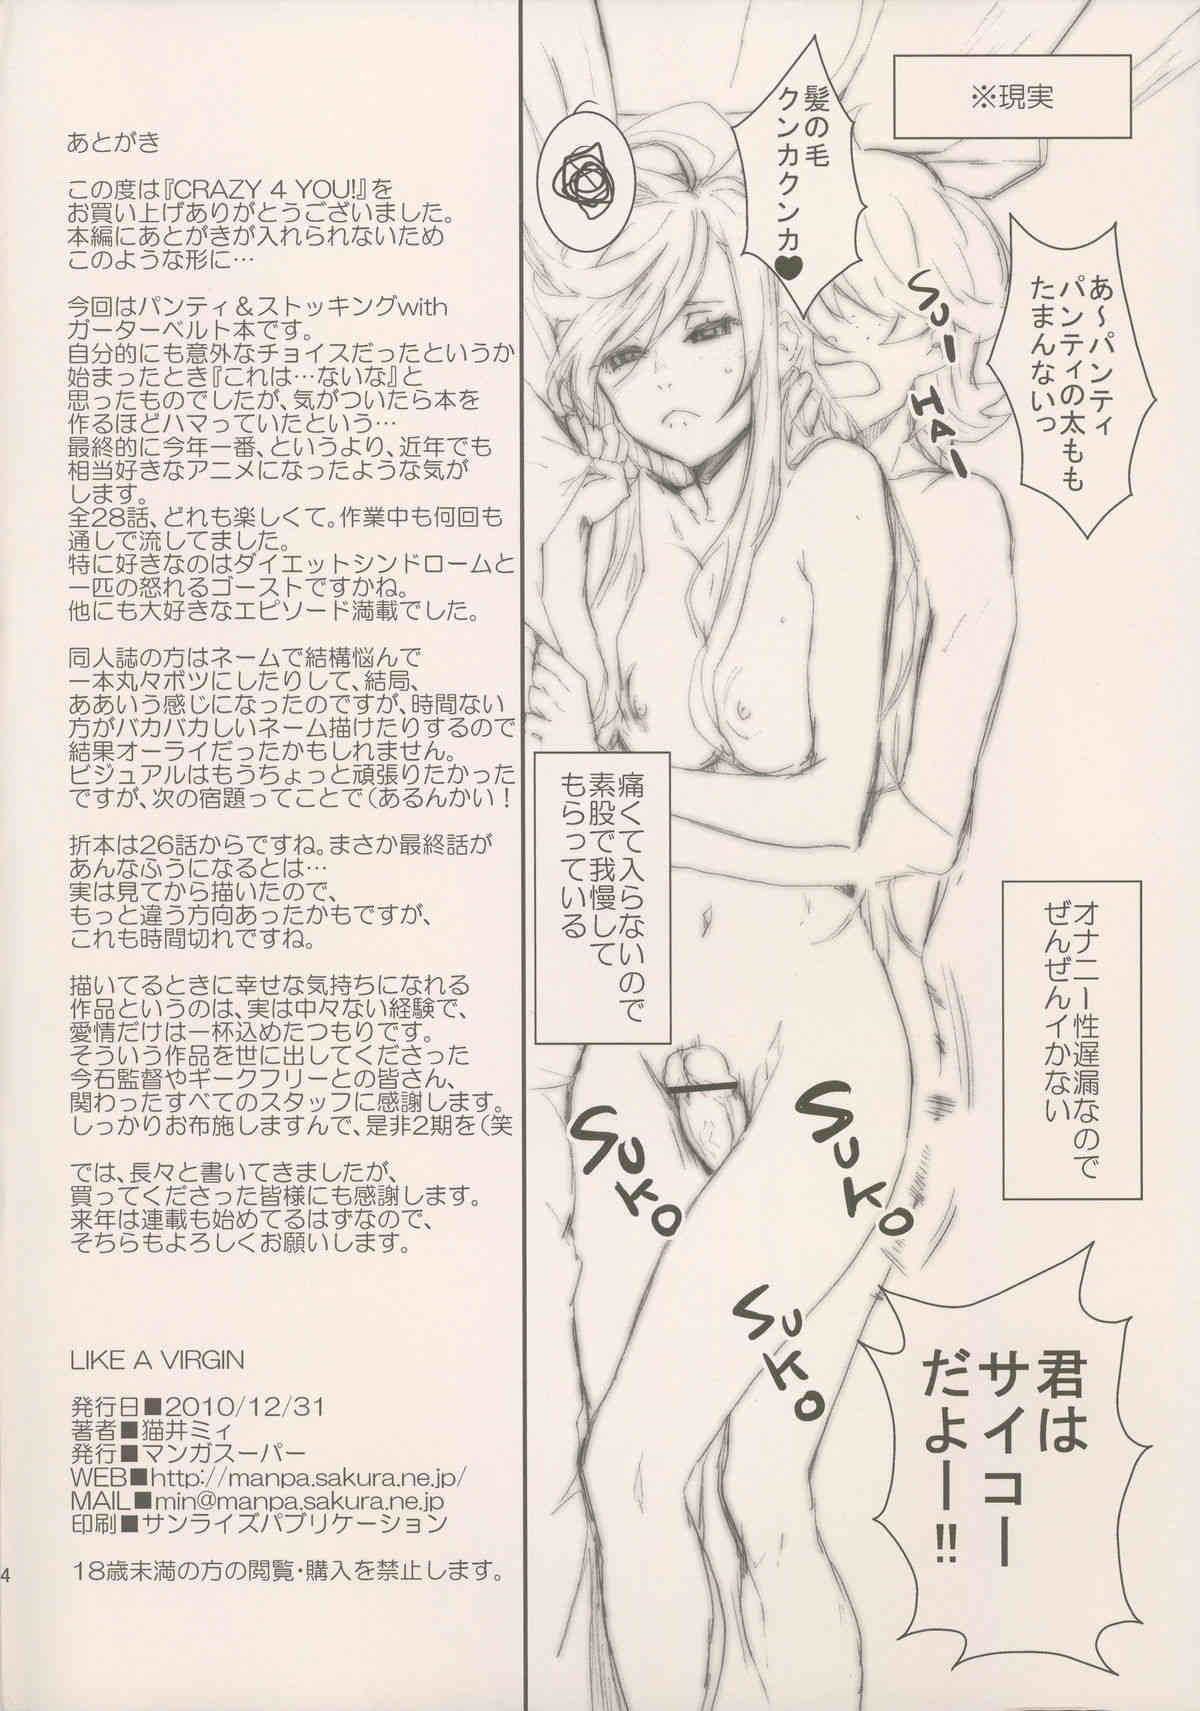 ※現実
髪の毛
クンカクンカ♥
あ～パンティ
パンティの太もも
たまんないっ
スーハー
痛くて入らないので
素股で我慢して
もらっている
オナニー性遅漏なので
ぜんぜんイかない
SUKO
SUKO
SUKO
君は
サイコー
だよー!!
あとがき
この度は『CRAZY 4 YOU!』を
お買い上げありがとうございました。
本編にあとがきが入れられないため
このような形に…
今回はパンティ＆ストッキングwith
ガーターベルト本です。
自分的にも意外なチョイスだったというか
始まったとき『これは…ないな』と
思ったものでしたが、気がついたら本を
作るほどハマっていたという…
最終的に今年一番、というより、近年でも
相当好きなアニメになったような気が
します。
全28話、どれも楽しくて。作業中も何回も
通しで流してました。
特に好きなのはダイエットシンドロームと
一匹の怒れるゴーストですかね。
他にも大好きなエピソード満載でした。
同人誌の方はネームで結構悩んで
一本丸々ボツにしたりして、結局、
ああいう感じになったのですが、時間ない
方がバカバカしいネーム描けたりするので
結果オーライだったかもしれません。
ビジュアルはもうちょっと頑張りたかった
ですが、次の宿題ってことで（あるんかい！
折本は26話からですね。まさか最終話が
あんなふうになるとは…
実は見てから描いたので、
もっと違う方向あったかもですが、
これも時間切れですね。
描いてるときに幸せな気持ちになれる
作品というのは、実は中々ない経験で、
愛情だけは一杯込めたつもりです。
そういう作品を世に出してくださった
今石監督やギークフリートの皆さん、
関わったすべてのスタッフに感謝します。
しっかりお布施しますんで、是非2期を（笑
では、長々と書いてきましたが、
買ってくださった皆様にも感謝します。
来年は連載も始めてるはずなので、
そちらもよろしくお願いします。
LIKE A VIRGIN
発行日■2010/12/31
著者■猫井ミィ
発行■マンガスーパー
WEB■http://manpa.sakura.ne.jp/
MAIL■min@manpa.sakura.ne.jp
印刷■サンライズパブリケーション
18歳未満の方の閲覧・購入を禁止します。
4